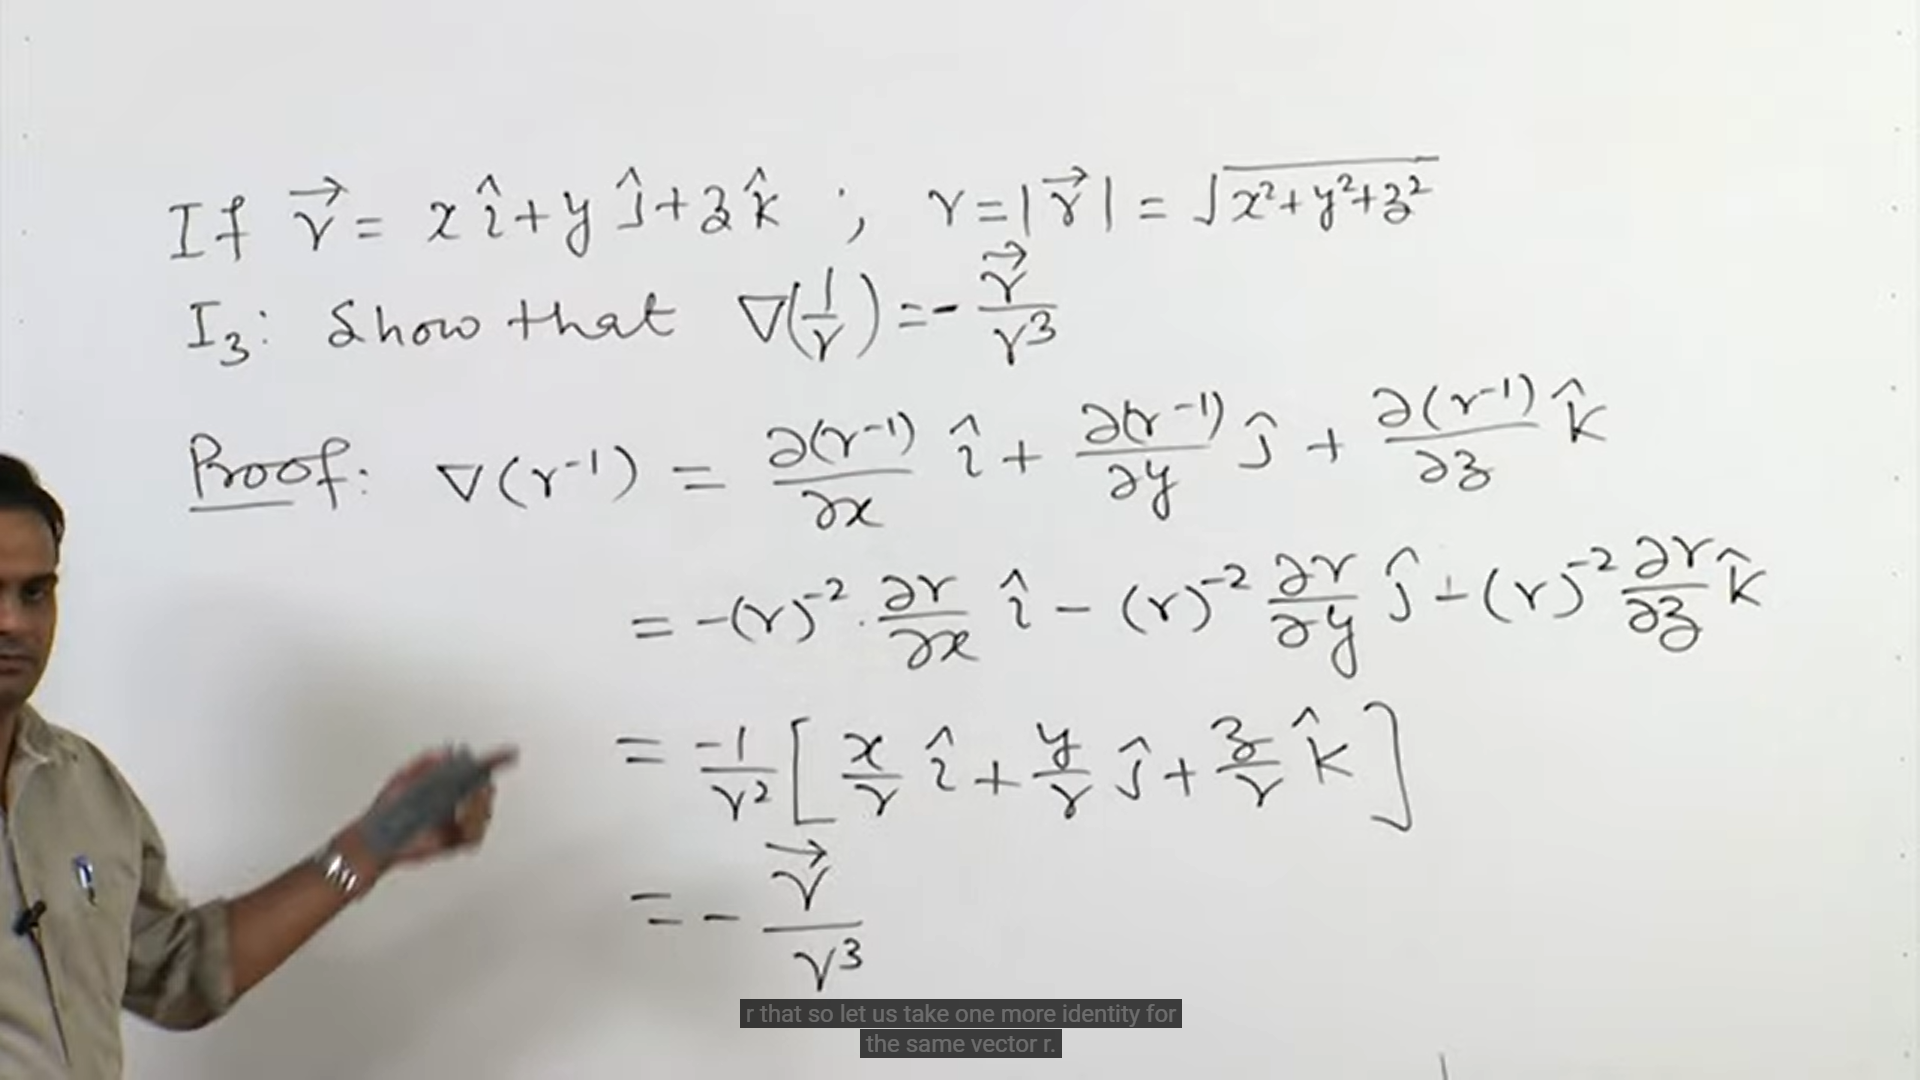 If r⃗ = x î + y ĵ + z k̂ ; r = |r⃗| = √(x²+y²+z²)
I₃: Show that ∇(1/r) = - r⃗/r³
Proof: ∇(r⁻¹) = ∂(r⁻¹)/∂x î + ∂(r⁻¹)/∂y ĵ + ∂(r⁻¹)/∂z k̂
= -(r)⁻² · ∂r/∂x î - (r)⁻² ∂r/∂y ĵ + (r)⁻² ∂r/∂z k̂
= -1/r² [ x/r î + y/r ĵ + z/r k̂ ]
= - r⃗/r³
r that so let us take one more identity for
the same vector r.